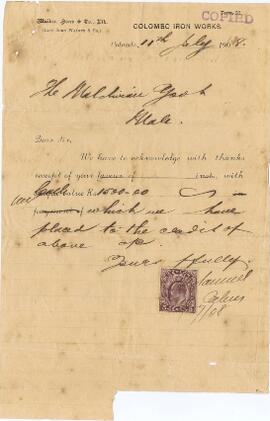 Form 23.
COPIED
Walker, Sons & Co., Ld.
COLOMBO IRON WORKS.
(Late John Walker & Co.)
Colombo, 11th July 1908.
The Maldivian Govt
Male.
Dear Sir,
We have to acknowledge with thanks
receipt of your favour of inst. with
value Rs 1500-00
payment of which we have
placed to the credit of
above a/c.
Yours ffully